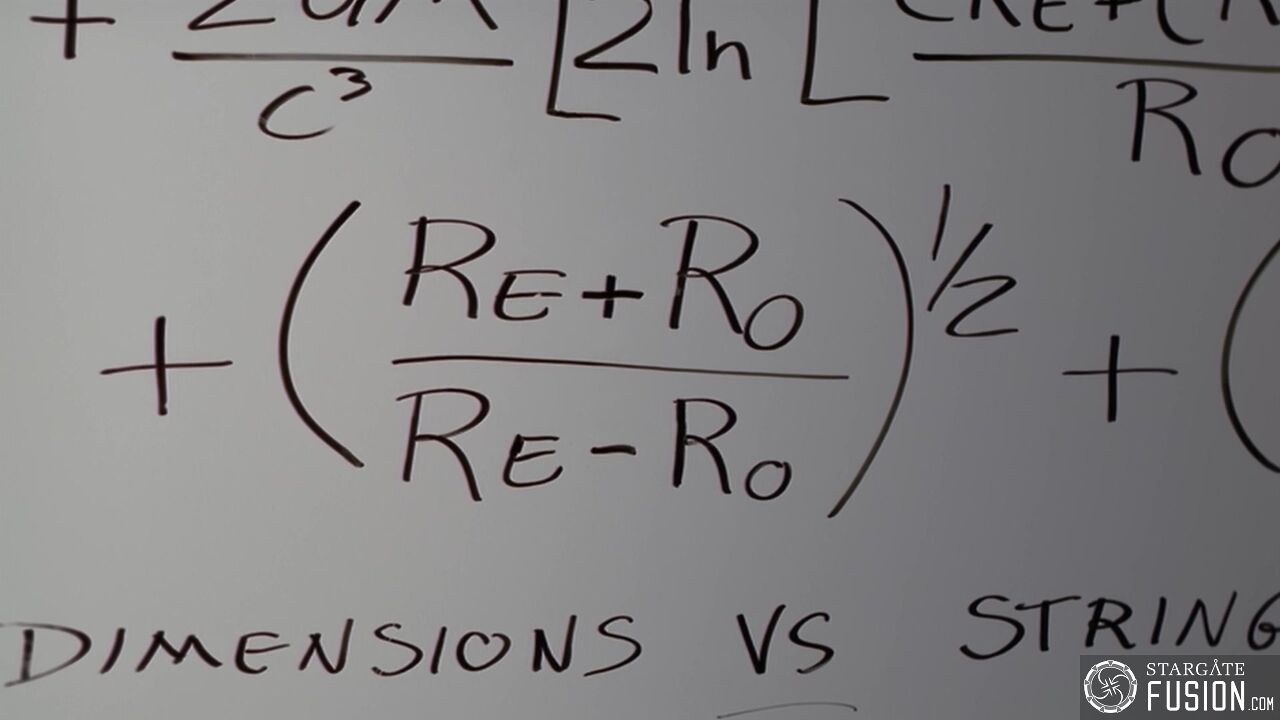 + 2GM [2 ln [ (RE+(R
c³ RO
+ ( RE+RO )^1/2 + (
RE-RO
DIMENSIONS VS STRING
STARGATE
FUSION.COM